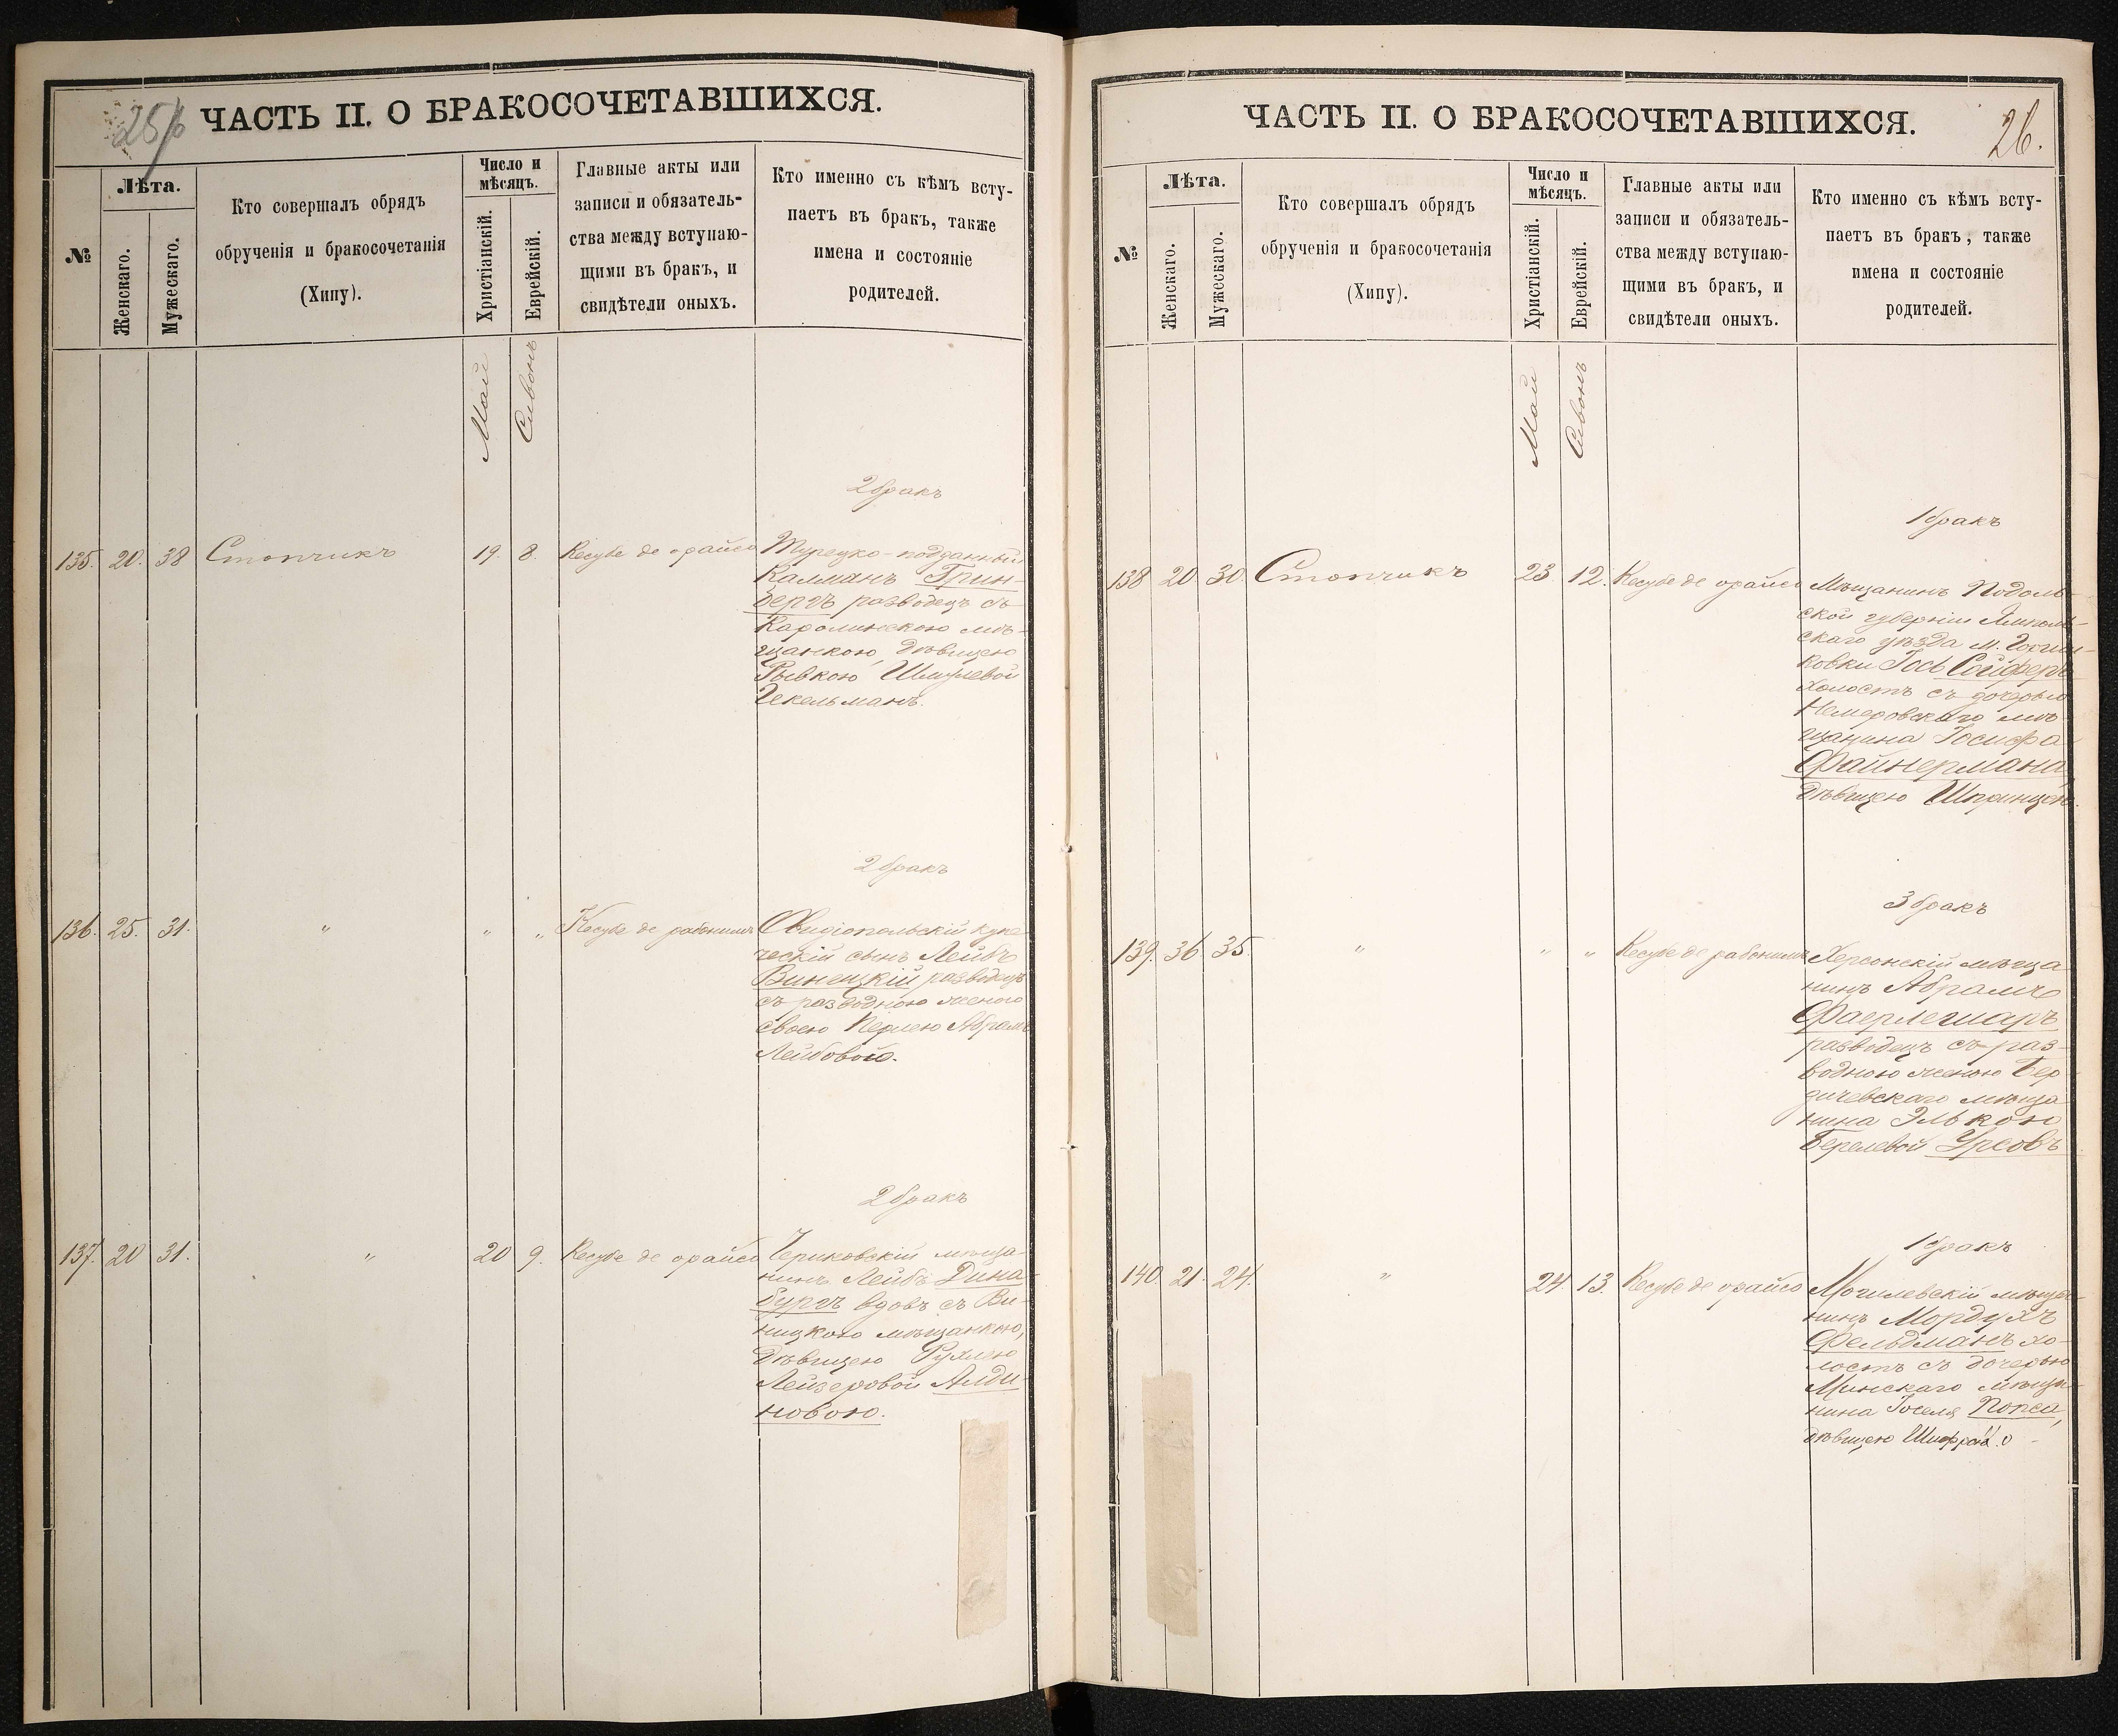 25/б
ЧАСТЬ II. О БРАКОСОЧЕТАВШИХСЯ.
№
Лѣта.
Женскаго.
Мужескаго.
Кто совершалъ обрядъ
обрученія и бракосочетанія
(Хипу).
Число и
мѣсяцъ.
Христіанскій.
Еврейскій.
Главные акты или
записи и обязатель-
ства между вступаю-
щими въ бракъ, и
свидѣтели оныхъ.
Кто именно съ кѣмъ всту-
паетъ въ бракъ, также
имена и состояніе
родителей.
Май
Сивонъ
2 бракъ
135. 20. 38 Стопчикъ 19. 8. Кесубе де орайсо Турецко-подданный
Калманъ Грин-
бергъ разводецъ съ
Каролинскою мѣ-
щанкою, дѣвицею
Рывкою Шмулевой
Гекельманъ.
2 бракъ
136. 25. 31. " " " Кесубе де рабонимъ Овидіопольскій купе
ческій сынъ Лейбъ
Винецкій разводецъ
съ разводною женою
своею Перлею Абрамъ
Лейбовою.
2 бракъ
137. 20 31. " 20 9. Кесубе де орайсо Чериковскій мѣща-
нинъ Лейбъ Дина-
бургъ вдовъ съ Ви-
ницкою мѣщанкою,
дѣвицею Рухлею
Лейзеровой Алди-
новою.
ЧАСТЬ II. О БРАКОСОЧЕТАВШИХСЯ.
26.
№
Лѣта.
Женскаго.
Мужескаго.
Кто совершалъ обрядъ
обрученія и бракосочетанія
(Хипу).
Число и
мѣсяцъ.
Христіанскій.
Еврейскій.
Главные акты или
записи и обязатель-
ства между вступаю-
щими въ бракъ, и
свидѣтели оныхъ.
Кто именно съ кѣмъ всту-
паетъ въ бракъ, также
имена и состояніе
родителей.
Май
Сивонъ
1 бракъ
138 20 30. Стопчикъ 23 12. Кесубе де орайсо Мѣщанинъ Подоль-
ской губерніи Ямполь-
скаго уѣзда м.
ковки Іось Сойферъ
холостъ съ дочерью
Немеровскаго мѣ-
щанина Іосифа
Файнермана,
дѣвицею Шпринцею.
3 бракъ
139. 36 35. " " " Кесубе де рабонимъ Херсонскій мѣща
нинъ Абрамъ
Фаерлешаръ
разводецъ съ раз-
водною женою Бер
дичевскаго мѣща
нина Элькою
Берелевой Урсовъ
1 бракъ
140. 21. 24. " 24. 13. Кесубе де орайсо Могилевскій мѣща-
нинъ Мордухъ
Фельдманъ хо-
лостъ съ дочерью
Минскаго мѣща-
нина Іоселя Попса,
дѣвицею